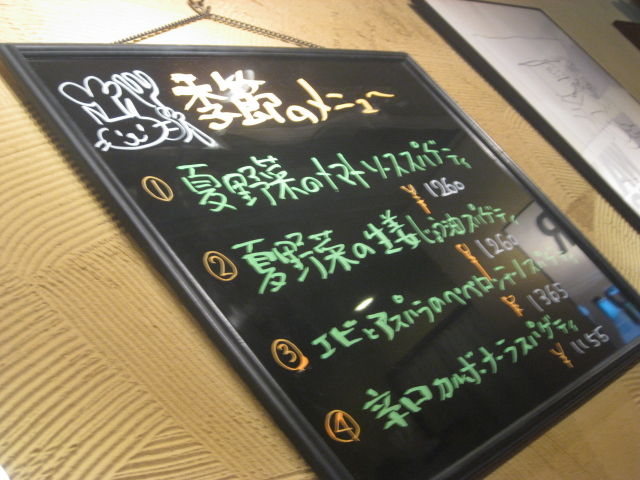 季節のメニュー
① 夏野菜のトマトソーススパゲティ
¥1260
② 夏野菜の生姜じょう油スパゲティ
¥1260
③ エビとアスパラのペペロンチーノスパゲティ
¥1365
④ 辛口カルボナーラスパゲティ
¥1155